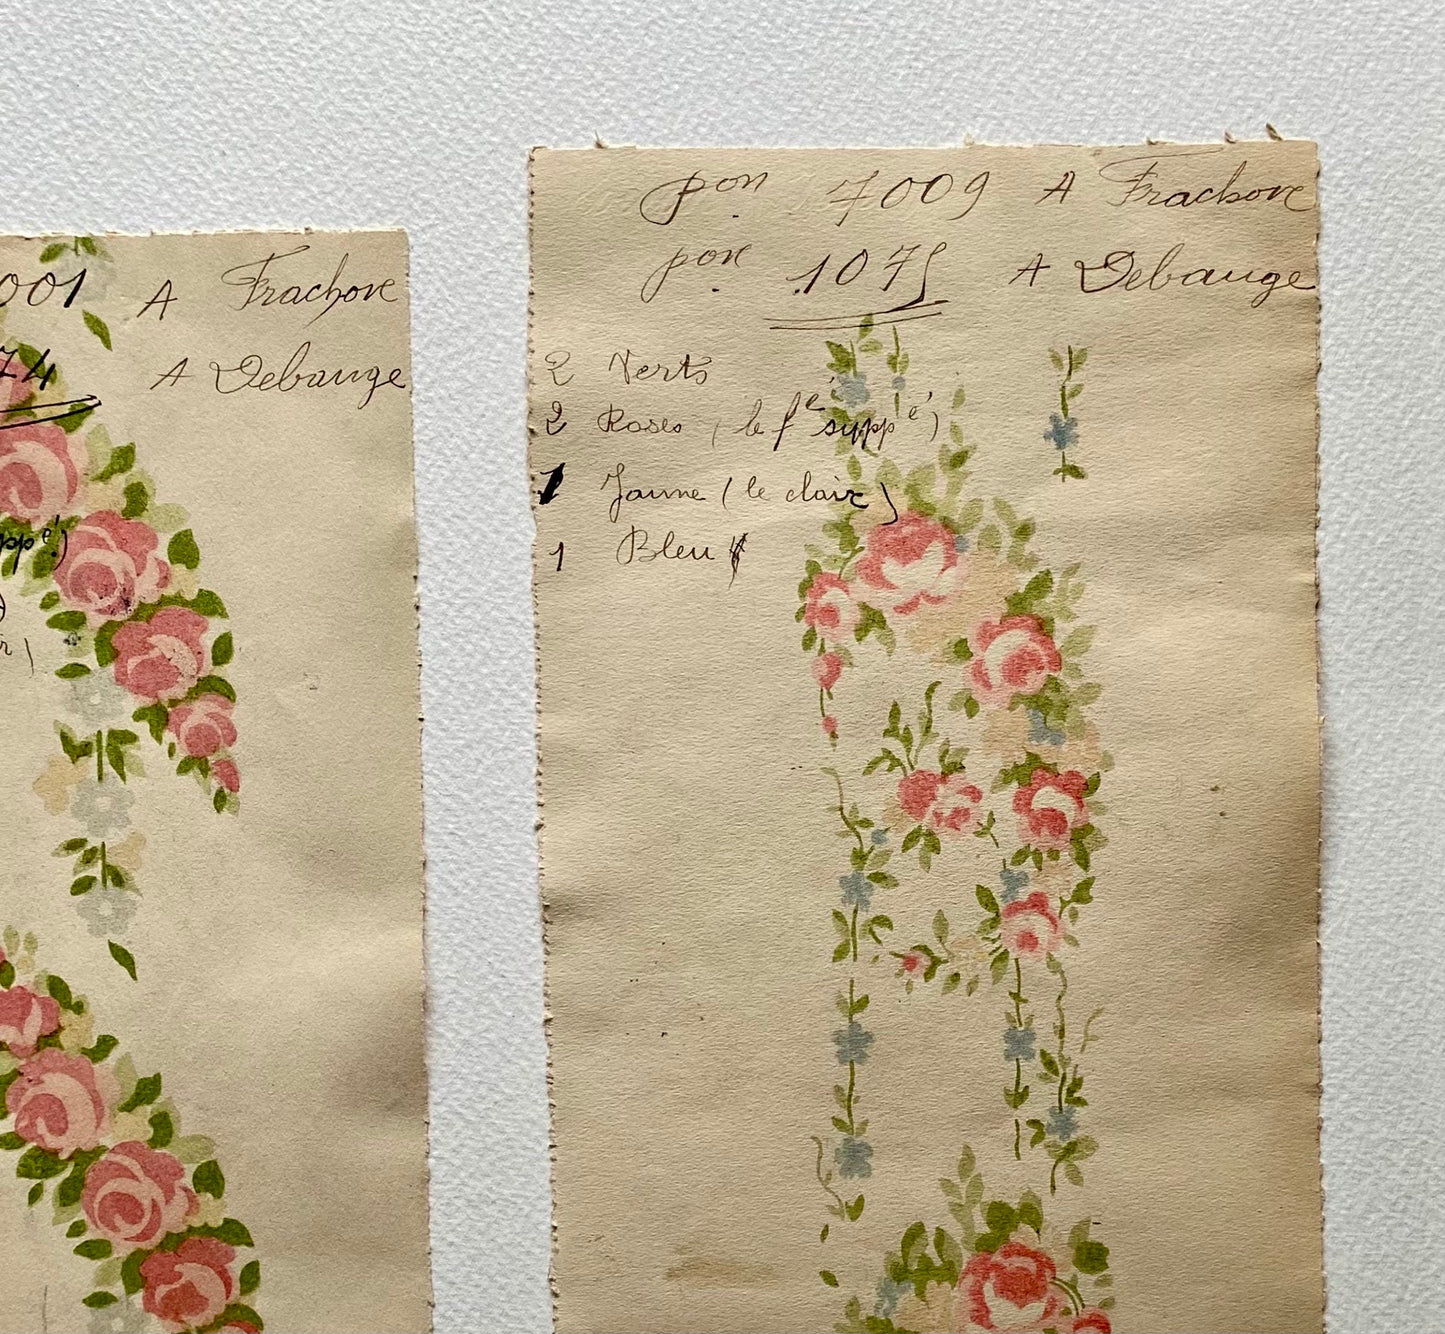 001 A Frachore
74 A Debauge
ppé)
r)
pon 7009 A Frachore
pon 1075 A Debauge
2 Verts
2 Roses (le fcé suppé)
1 Jaune (le clair)
1 Bleu